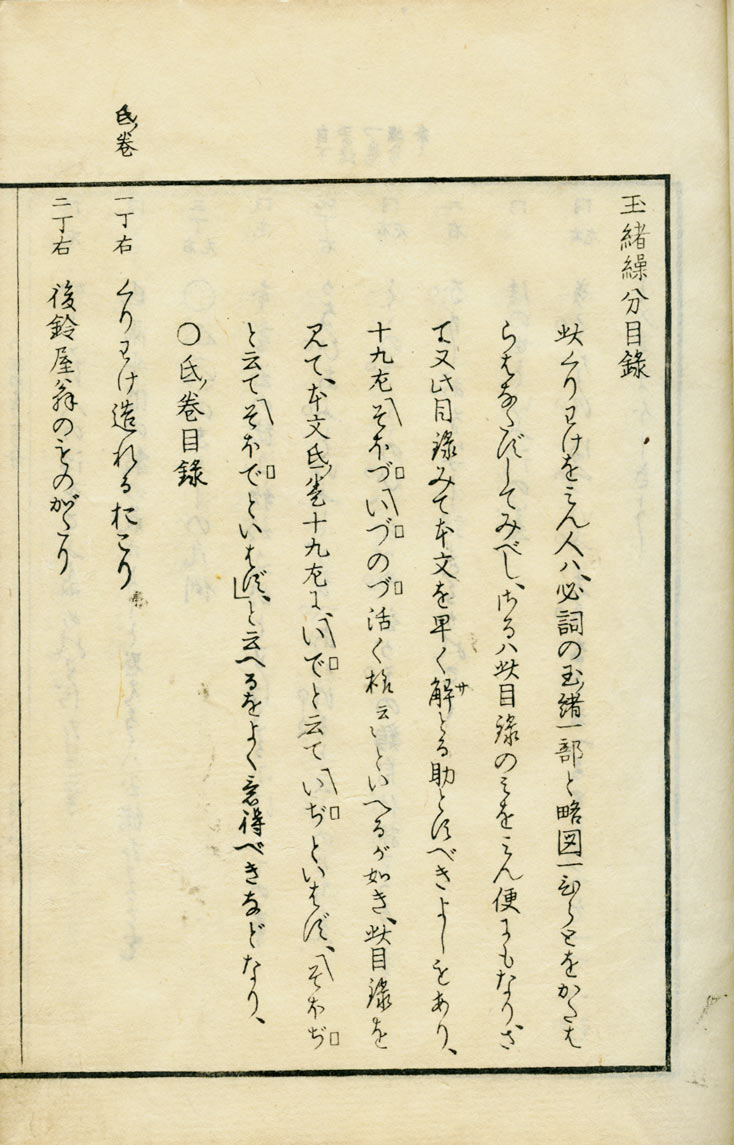 玉緒繰分目録
此くりわけをミん人ハ、必詞の玉緒一部と略図一ひらとをかたは
らはなたずしてみべし、さるハ此目録のミをミん便にもなり、さ
て又此目録みて本文を早く解サとる助とすべきよしもあり、
十九左そほづいづのづ活く格云々といへるが如き、此目録を
見て、本文氐ノ巻十九左に、いでと云て、いぢといはず、そほぢ
と云て、そほでといはず、と云へるをよく意得べきなどなり、
〇氐ノ巻目録
氐ノ巻
一丁右 くりわけ造れるおこり
二丁右 後鈴屋翁のものがたり